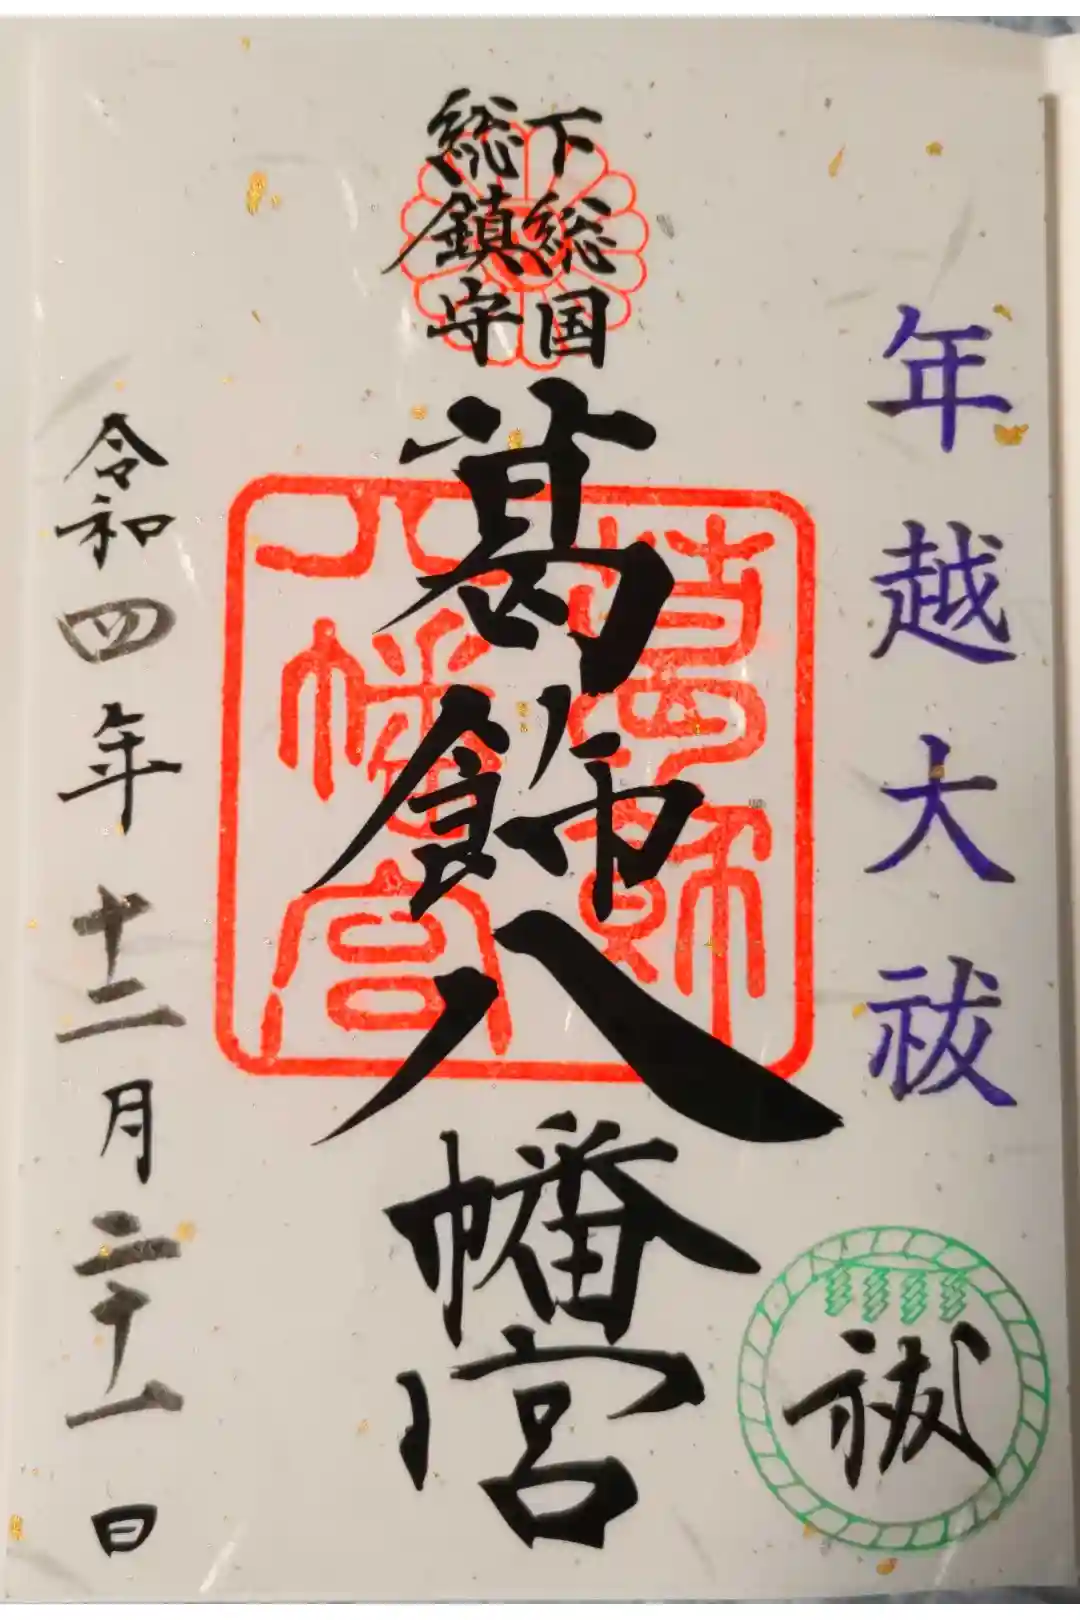 年越大祓
下総国
総鎮守
葛飾八幡宮
葛飾
八幡宮
祓
令和四年十二月二十一日